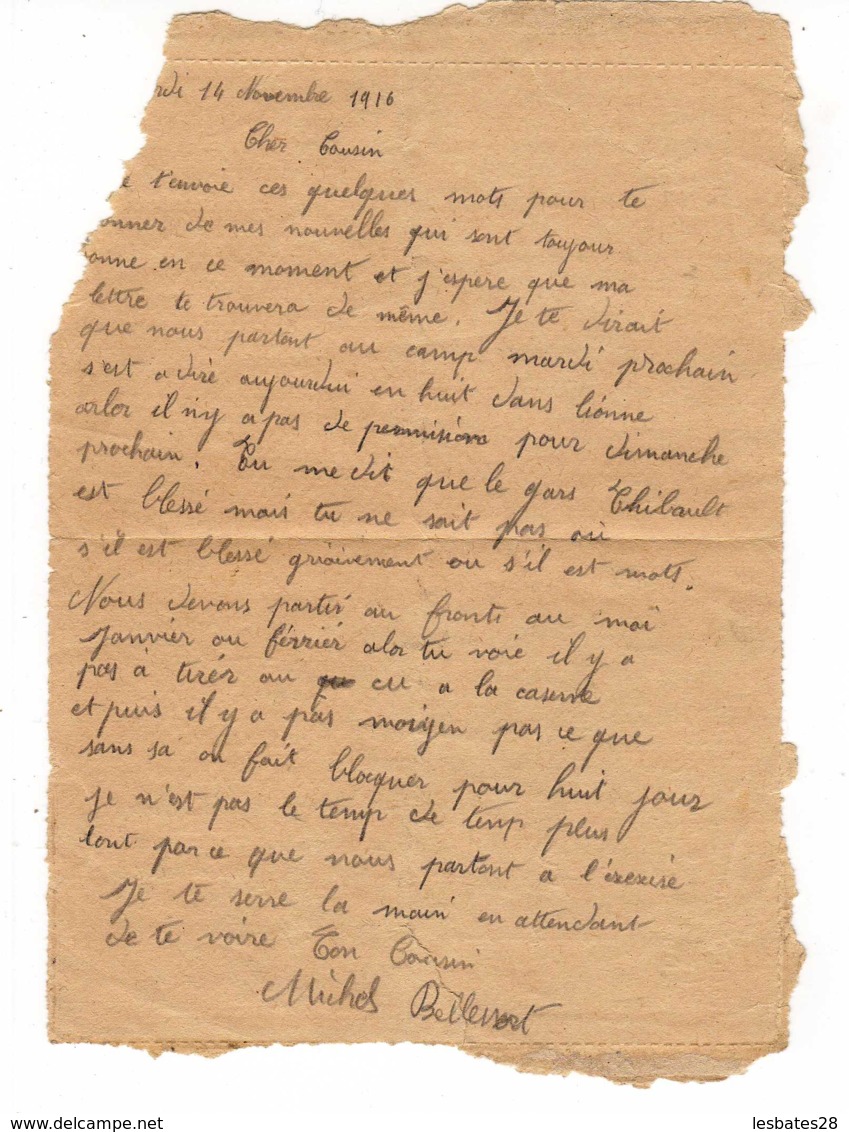 rdi 14 Novembre 1916
Cher Cousin
e t'envoie ces quelques mots pour te
onner de mes nouvelles qui sont toujour
onne en ce moment et j'espere que ma
lettre te trouvera de même. Je te dirait
que nous partont au camp mardi prochain
s'est a dire aujourdui en huit dans lionne
arlor il n'y a pas de permision pour dimanche
prochain. Tu me dit que le gars Thibault
est blessé mais tu ne sait pas où
s'il est blessé grièvement ou s'il est mots.
Nous devons partir au fronts au moi
Janvier ou février alor tu voie il y a
pas à tirér au cu a la caserne
et puis il y a pas moiyen pas ce que
sans sa on fait bloquer pour huit jour
je n'est pas le temp de tenp plus
lont par ce que nous partont a l'éxexisé
Je te serre la main en attendant
de te voire Ton Cousin
Michel Bellessort
lesbates28